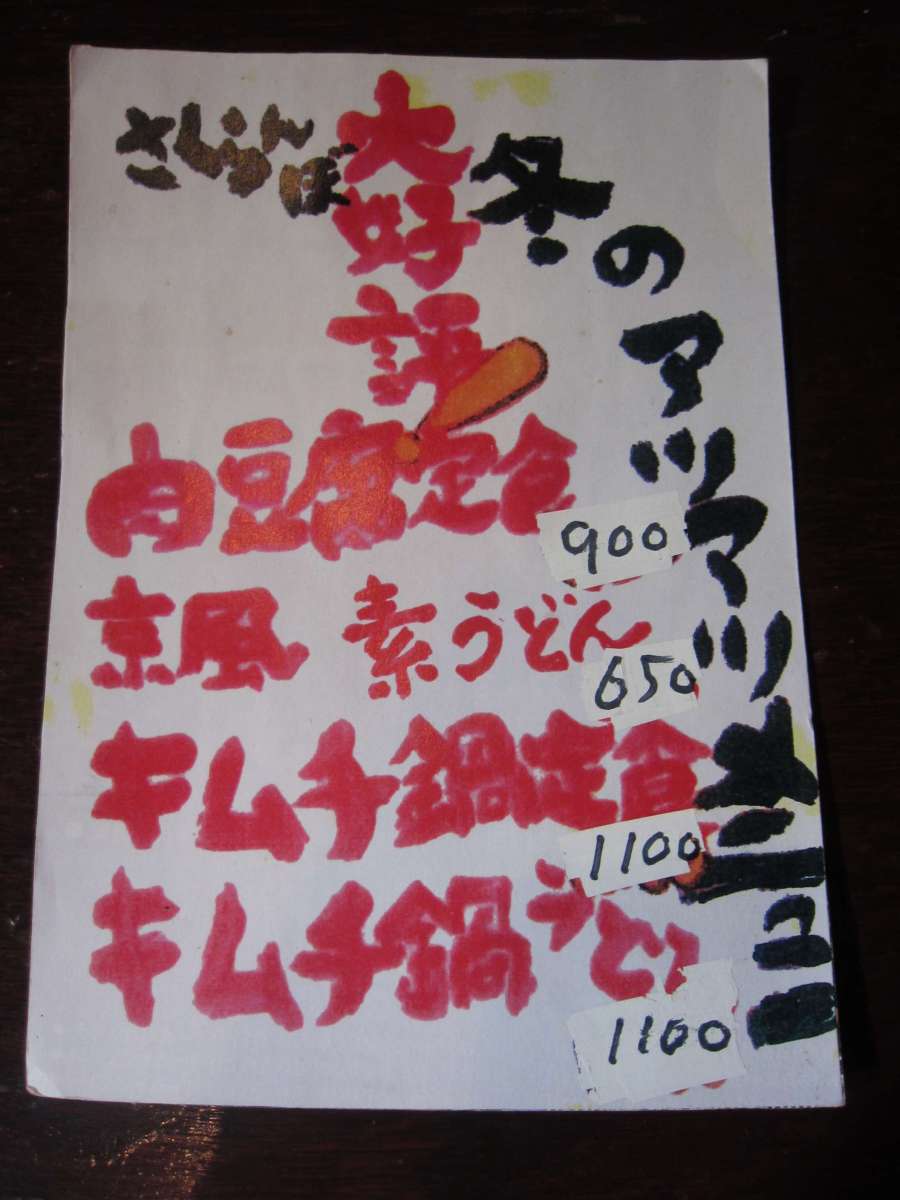 さくらんぼ
大好評!
冬のアツアツメニュー
肉豆腐定食 900
京風 素うどん 650
キムチ鍋定食 1100
キムチ鍋うどん 1100